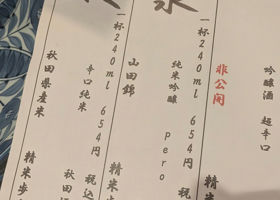 吟醸酒 超辛口
非公開
一杯240ml 654円
氷
純米吟醸 pero
山田錦
一杯240ml 654円 税込
辛口純米
秋田県産米
精米歩
精米
秋田